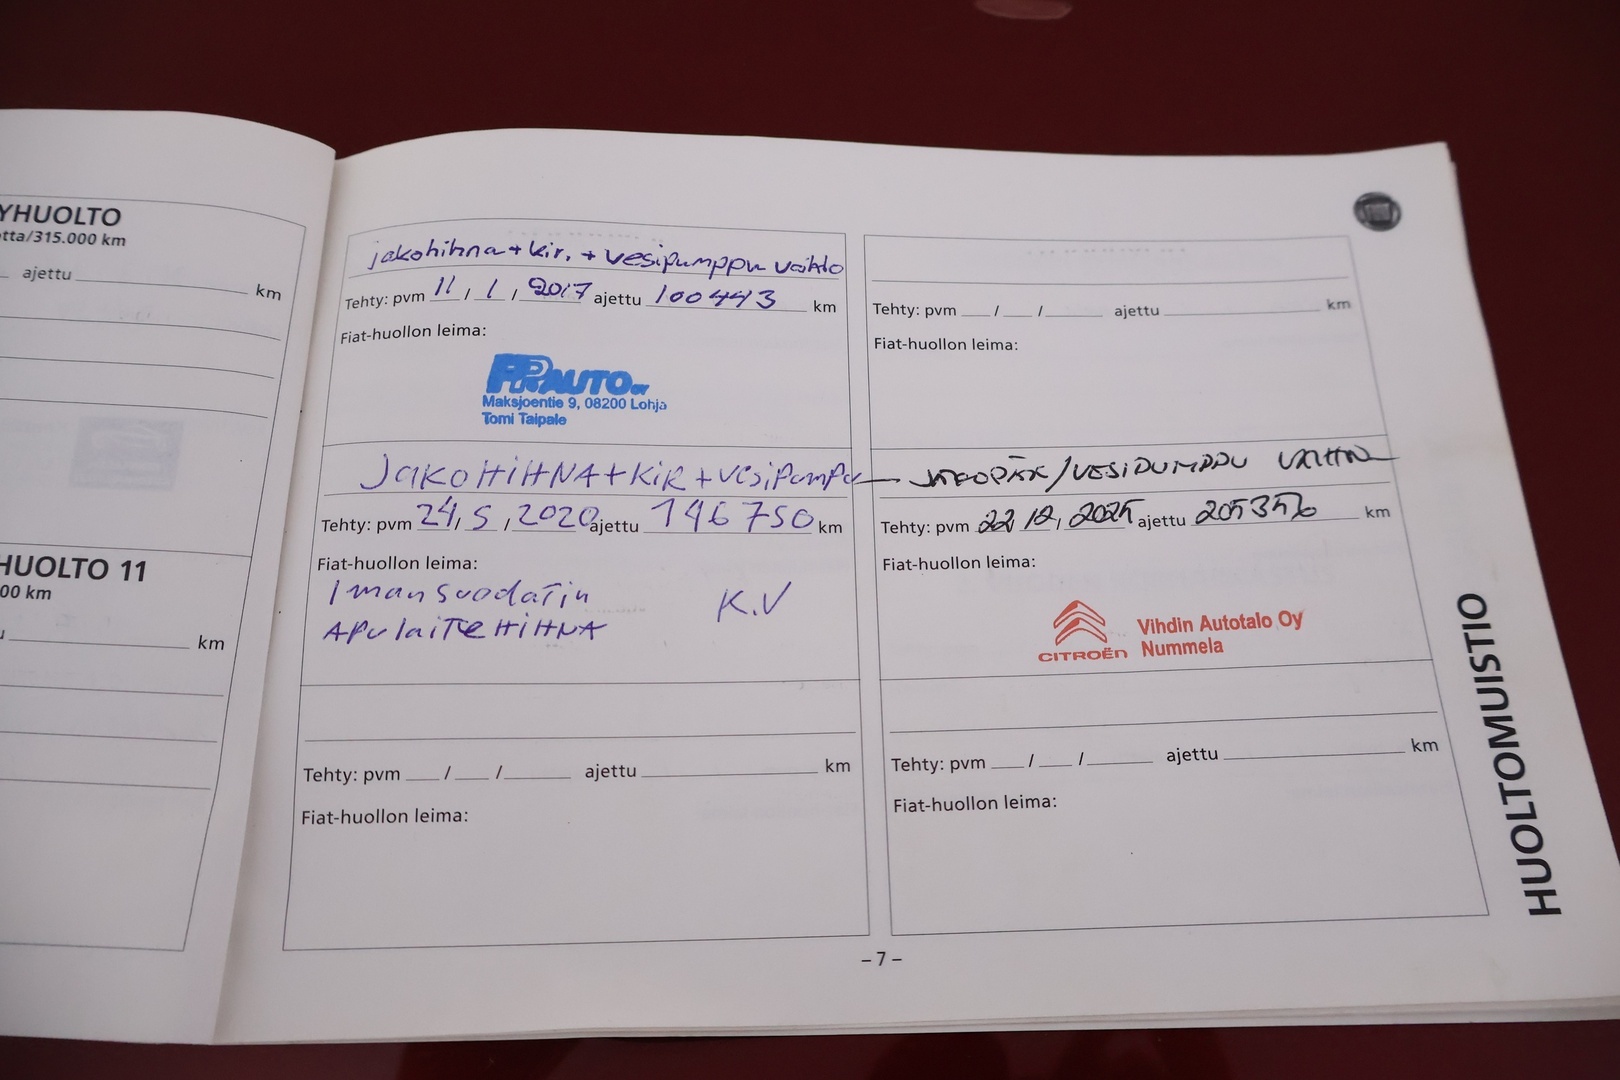 YHUOLTO
otta/315.000 km
ajettu km
HUOLTO 11
00 km
km
jakohihna + kir. + vesipumppu vaihto
Tehty: pvm 11 / 1 / 2017 ajettu 100443 km
Fiat-huollon leima:
PR AUTO OY
Maksjoentie 9, 08200 Lohja
Tomi Taipale
JAKOHIHNA + KIR + vesipumpu
Tehty: pvm 24, 5, 2020 ajettu 146750 km
Fiat-huollon leima:
Imansuodatin K.V
APulaiTeHiHNA
Tehty: pvm / / ajettu km
Fiat-huollon leima:
Tehty: pvm / / ajettu km
Fiat-huollon leima:
JAKOPÄÄ/VESIPUMPPU
Tehty: pvm 22, 12, ajettu km
Fiat-huollon leima:
CITROËN Vihdin Autotalo Oy
Nummela
Tehty: pvm / / ajettu km
Fiat-huollon leima:
HUOLTOMUISTIO
– 7 –